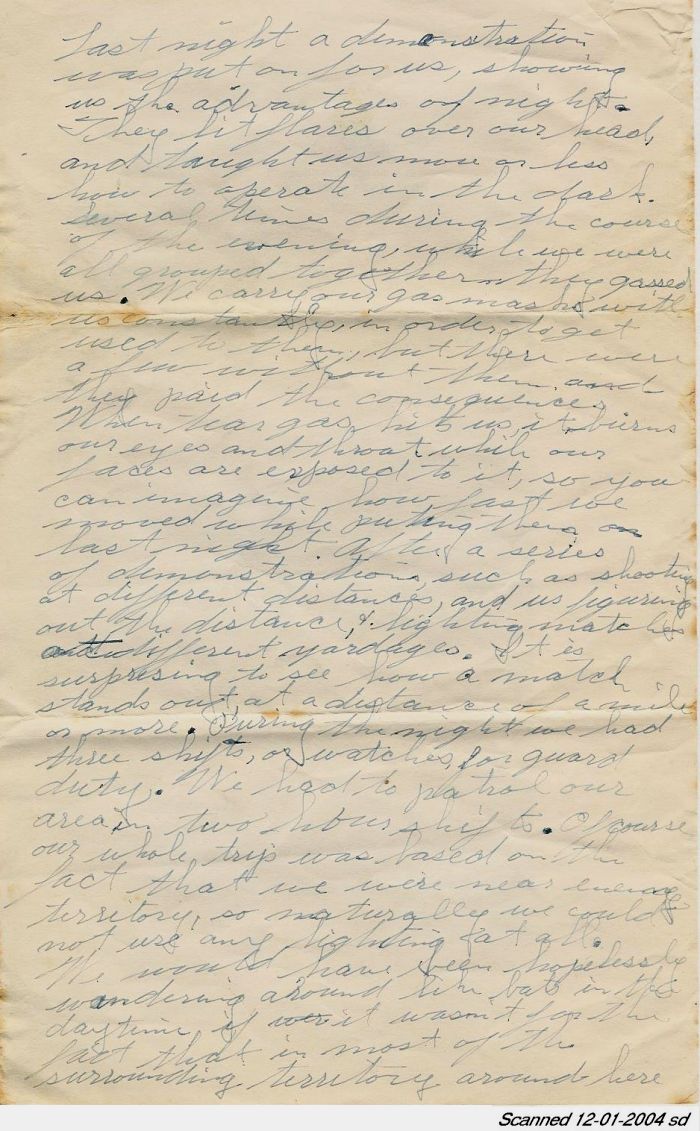 Last night a demonstration
was put on for us, showing
us the advantages of nights.
They lit flares over our head,
and taught us more or less
how to operate in the dark.
Several times during the course
of the evening, while we were
all grouped together they gassed
us. We carry our gas masks with
us constantly, in order to get
used to them, but there were
a few without them and
they paid the consequences.
When tear gas hits us it burns
our eyes and throat while our
faces are exposed to it, so you
can imagine how fast we
moved while puting them on
last night. After a series
of demonstrations, such as shooting
at different distances, and us figuring
out the distance, & lighting matches
at different yardages. It is
surprising to see how a match
stands out, at a distance of a mile
or more. During the night we had
three shifts, or watches, for guard
duty. We had to patrol our
area in two hour shifts. Of course
our whole trip was based on the
fact that we were near enemy
territory, so naturally we could
not use any lighting at all.
We would have been hopelessly
wandering around like bats in the
daytime, if it wasn't for the
fact that in most of the
surrounding territory around here
Scanned 12-01-2004 sd